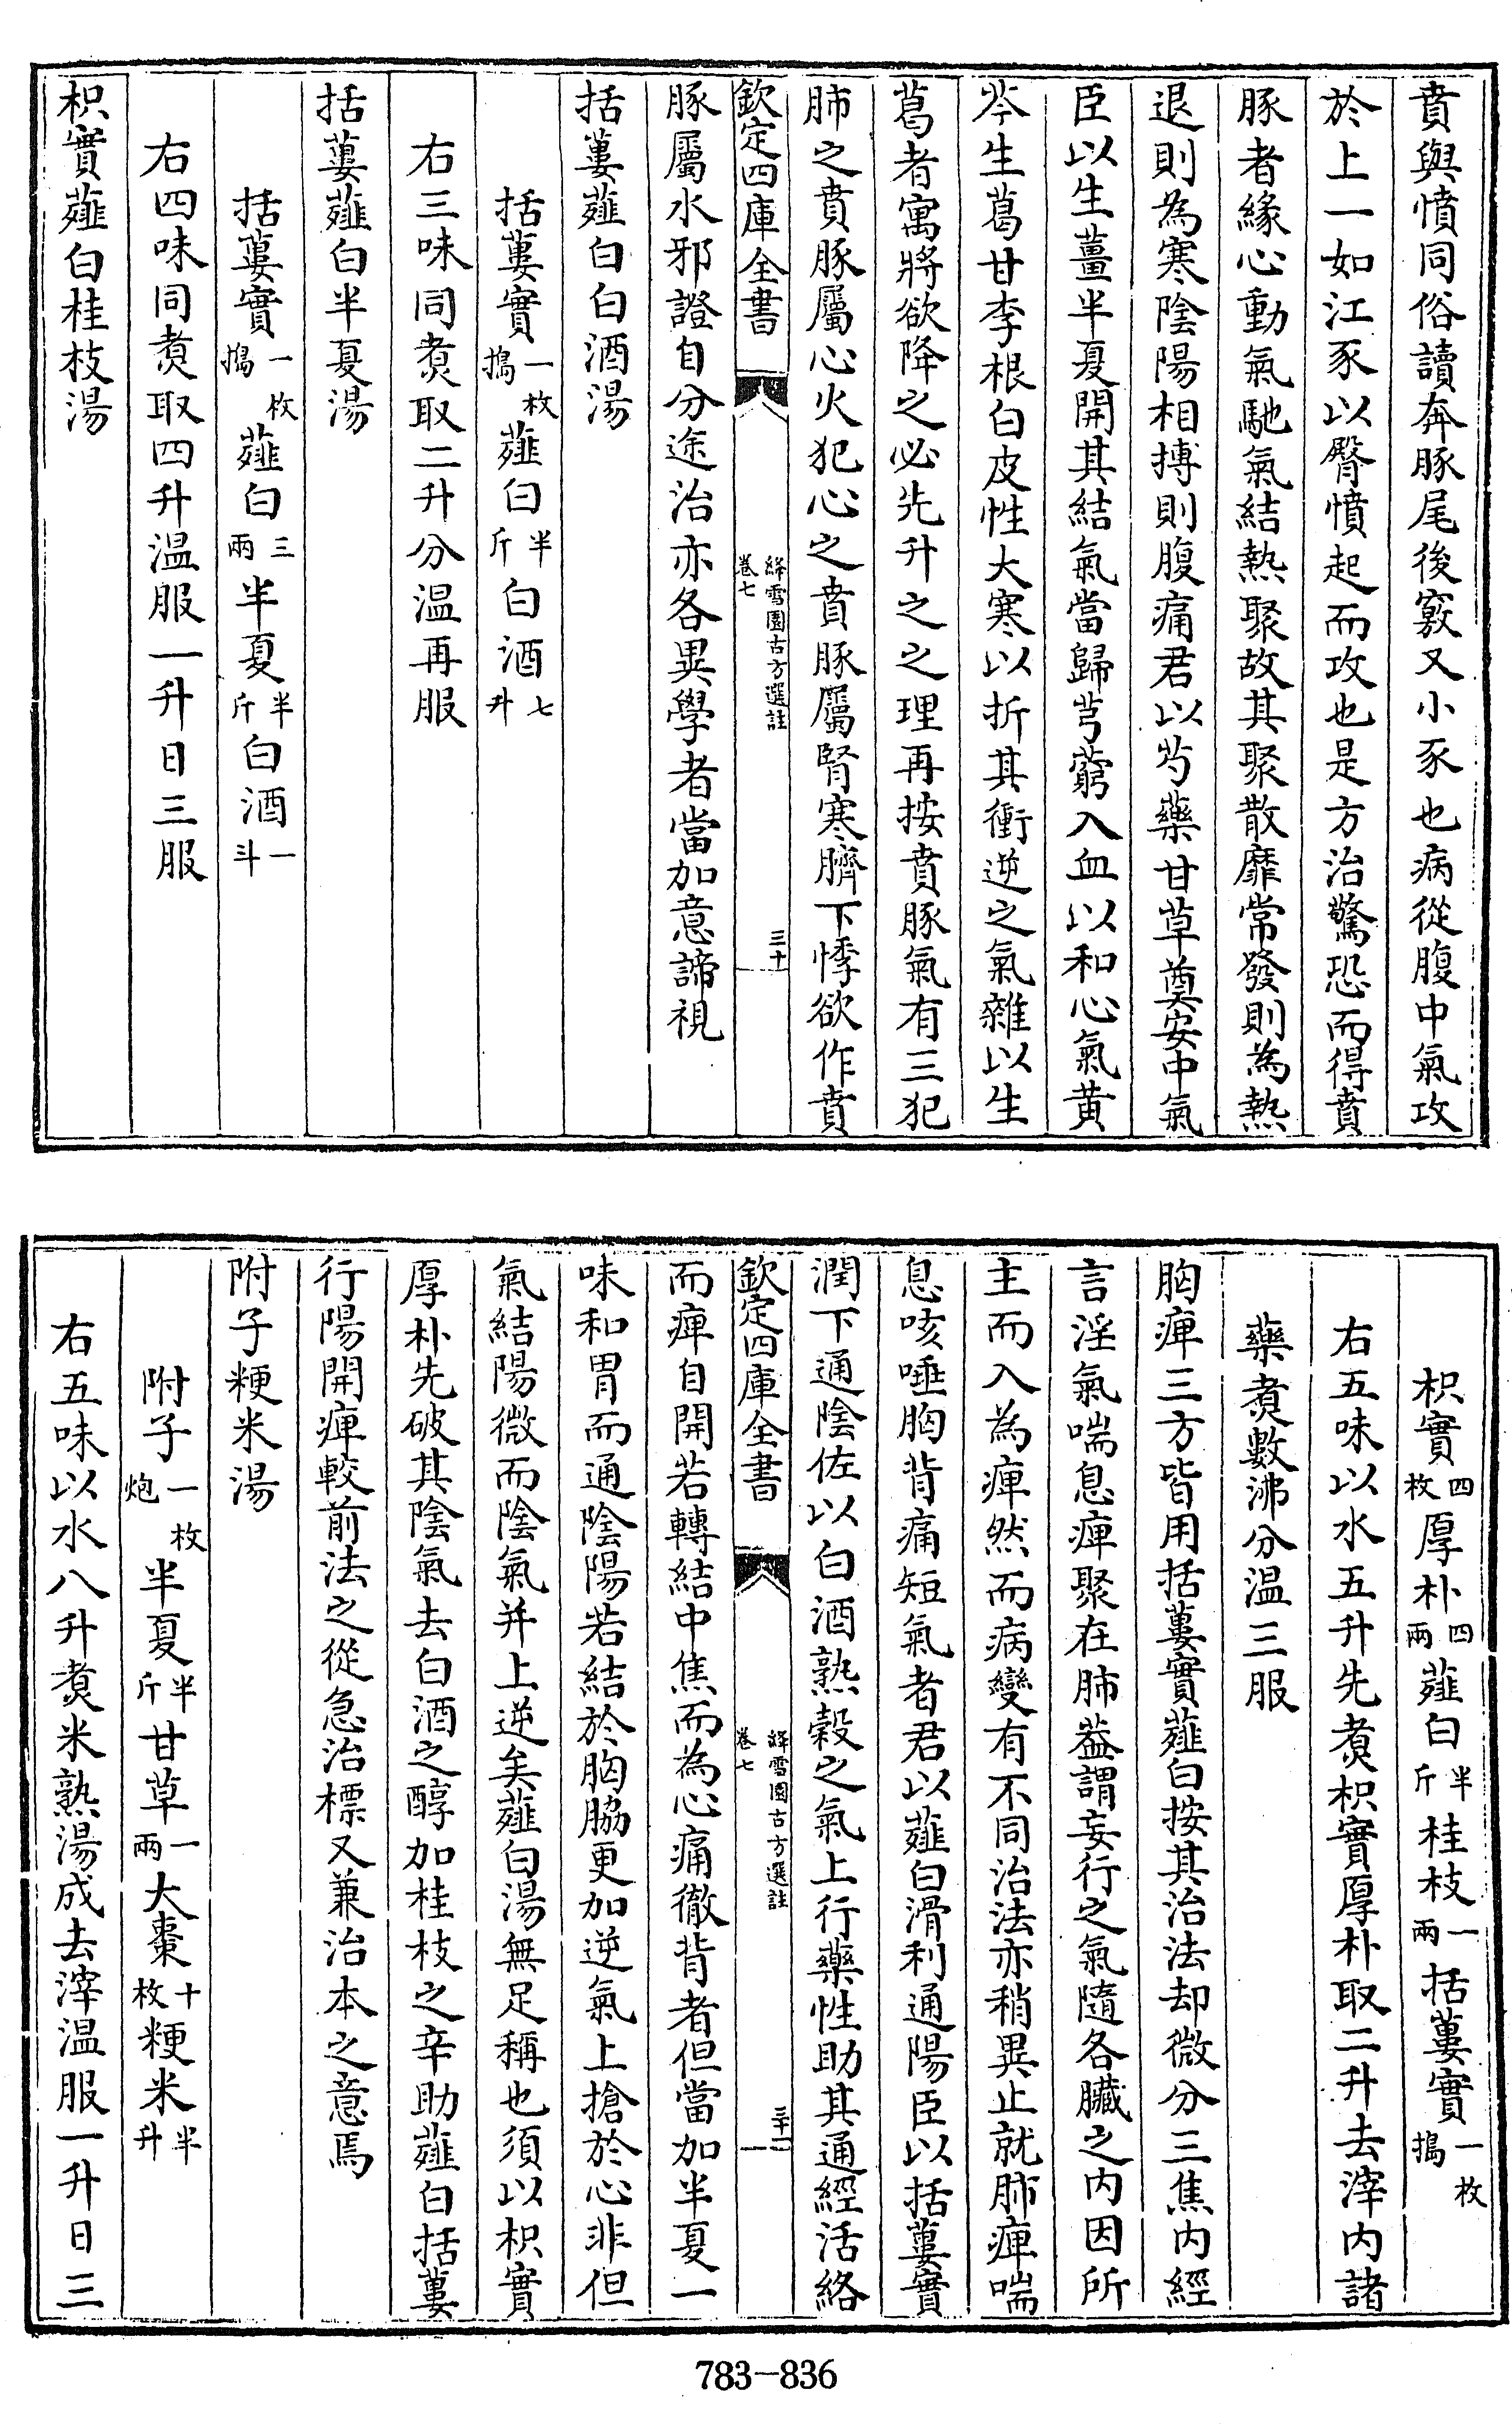 賁與憤同俗讀奔豚尾後竅又小豕也病從腹中氣攻
於上一如江豕以臀憤起而攻也是方治驚恐而得賁
豚者緣心動氣馳氣結熱聚故其聚散靡常發則為熱
退則為寒陰陽相搏則腹痛君以芍藥甘草奠安中氣
臣以生薑半夏開其結氣當歸芎藭入血以和心氣黃
芩生葛甘李根白皮性大寒以折其衝逆之氣雜以生
葛者寓將欲降之必先升之之理再按賁豚氣有三犯
肺之賁豚屬心火犯心之賁豚屬腎寒臍下悸欲作賁
欽定四庫全書 絳雪園古方選註 卷七 三十
豚屬水邪證自分途治亦各異學者當加意諦視
括蔞薤白白酒湯
括蔞實一枚搗薤白半斤白酒七升
右三味同煑取二升分温再服
括蔞薤白半夏湯
括蔞實一枚搗薤白三兩半夏半斤白酒一斗
右四味同煑取四升温服一升日三服
枳實薤白桂枝湯
枳實四枚厚朴四兩薤白半斤桂枝一兩括蔞實一枚搗
右五味以水五升先煑枳實厚朴取二升去滓内諸
藥煑數沸分温三服
胸痺三方皆用括蔞實薤白按其治法却微分三焦内經
言淫氣喘息痺聚在肺葢謂妄行之氣隨各臟之内因所
主而入為痺然而病變有不同治法亦稍異止就肺痺喘
息咳唾胸背痛短氣者君以薤白滑利通陽臣以括蔞實
潤下通陰佐以白酒熟穀之氣上行藥性助其通經活絡
欽定四庫全書 絳雪園古方選註 卷七 三十一
而痺自開若轉結中焦而為心痛徹背者但當加半夏一
味和胃而通陰陽若結於胸脇更加逆氣上搶於心非但
氣結陽微而陰氣并上逆矣薤白湯無足稱也須以枳實
厚朴先破其陰氣去白酒之醇加桂枝之辛助薤白括蔞
行陽開痺較前法之從急治標又兼治本之意焉
附子粳米湯
附子一枚炮半夏半斤甘草一兩大棗十枚粳米半升
右五味以水八升煑米熟湯成去滓温服一升日三
783-836